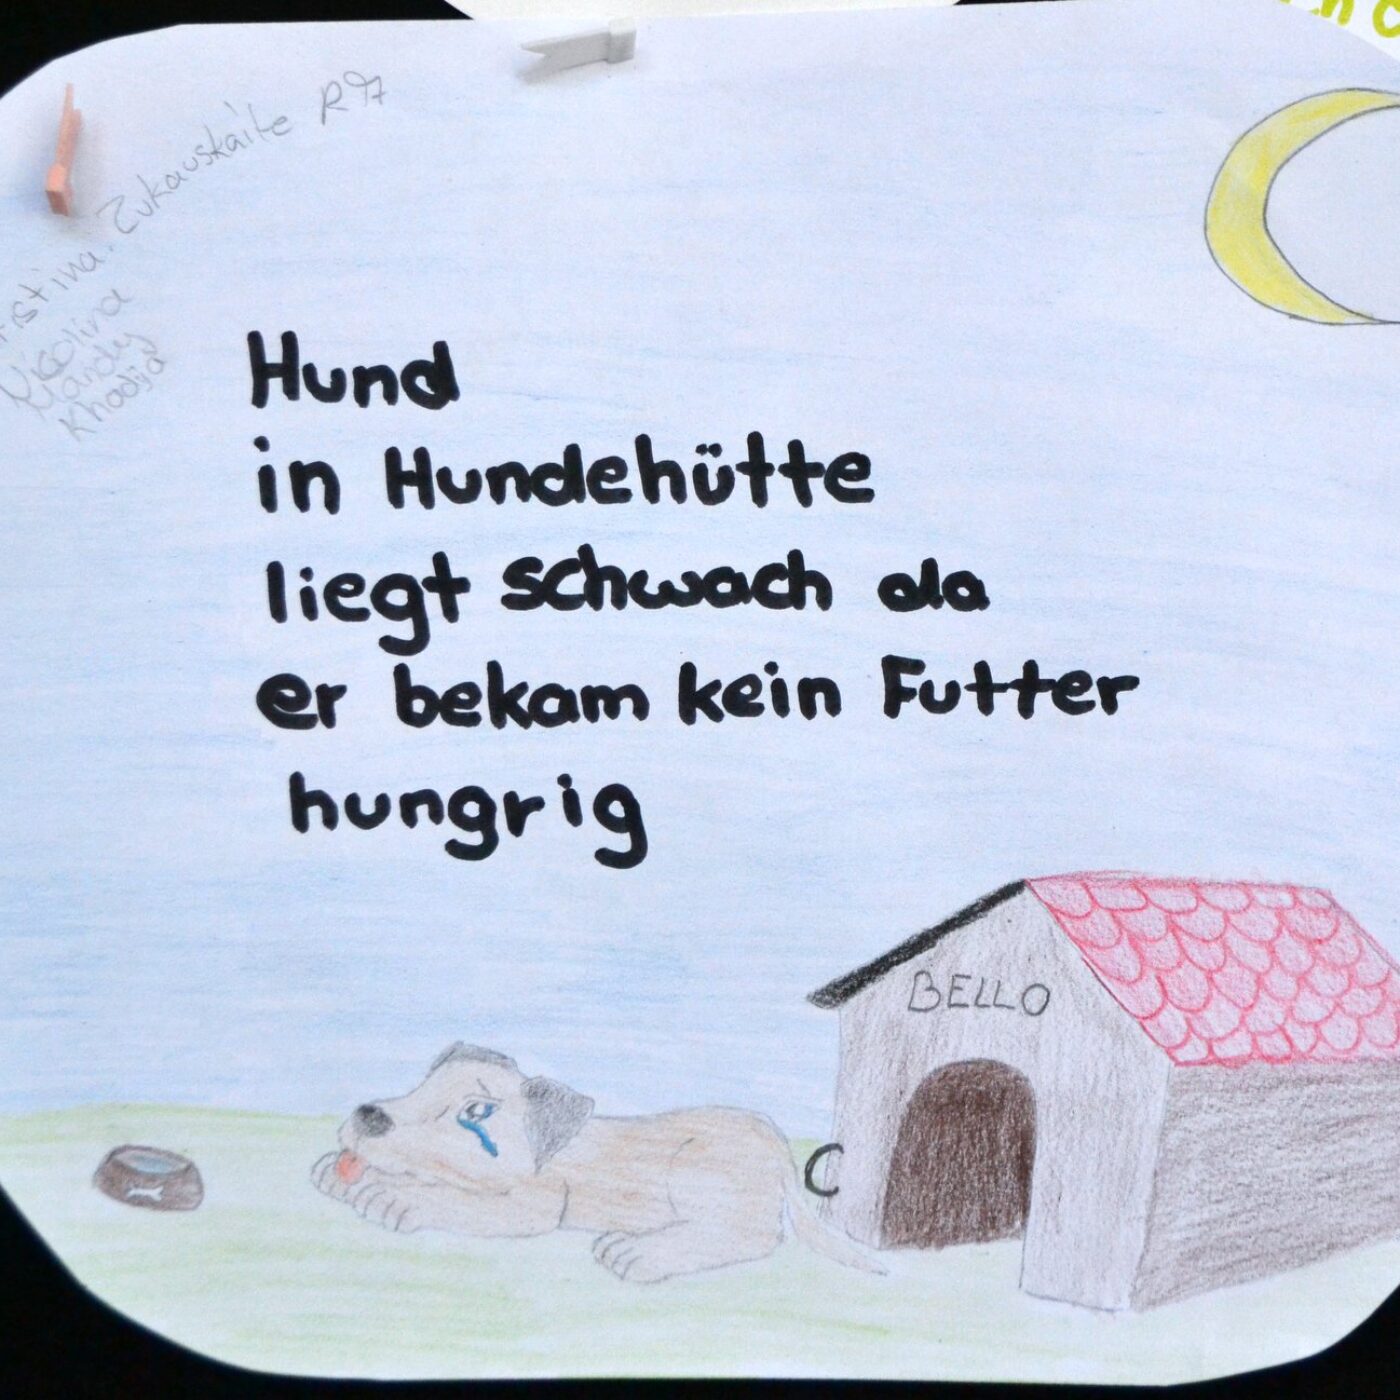 Zukauskaite R97
Khadija
Hund
in Hundehütte
liegt schwach da
er bekam kein Futter
hungrig
BELLO